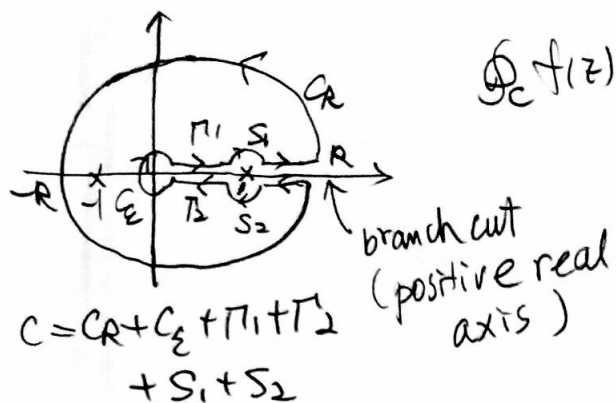 ∮_C f(z)
C_R
Γ1 S1
-R -1 C_ε Γ2 S2 R
branch cut
(positive real
axis)
C = C_R + C_ε + Γ1 + Γ2
+ S1 + S2